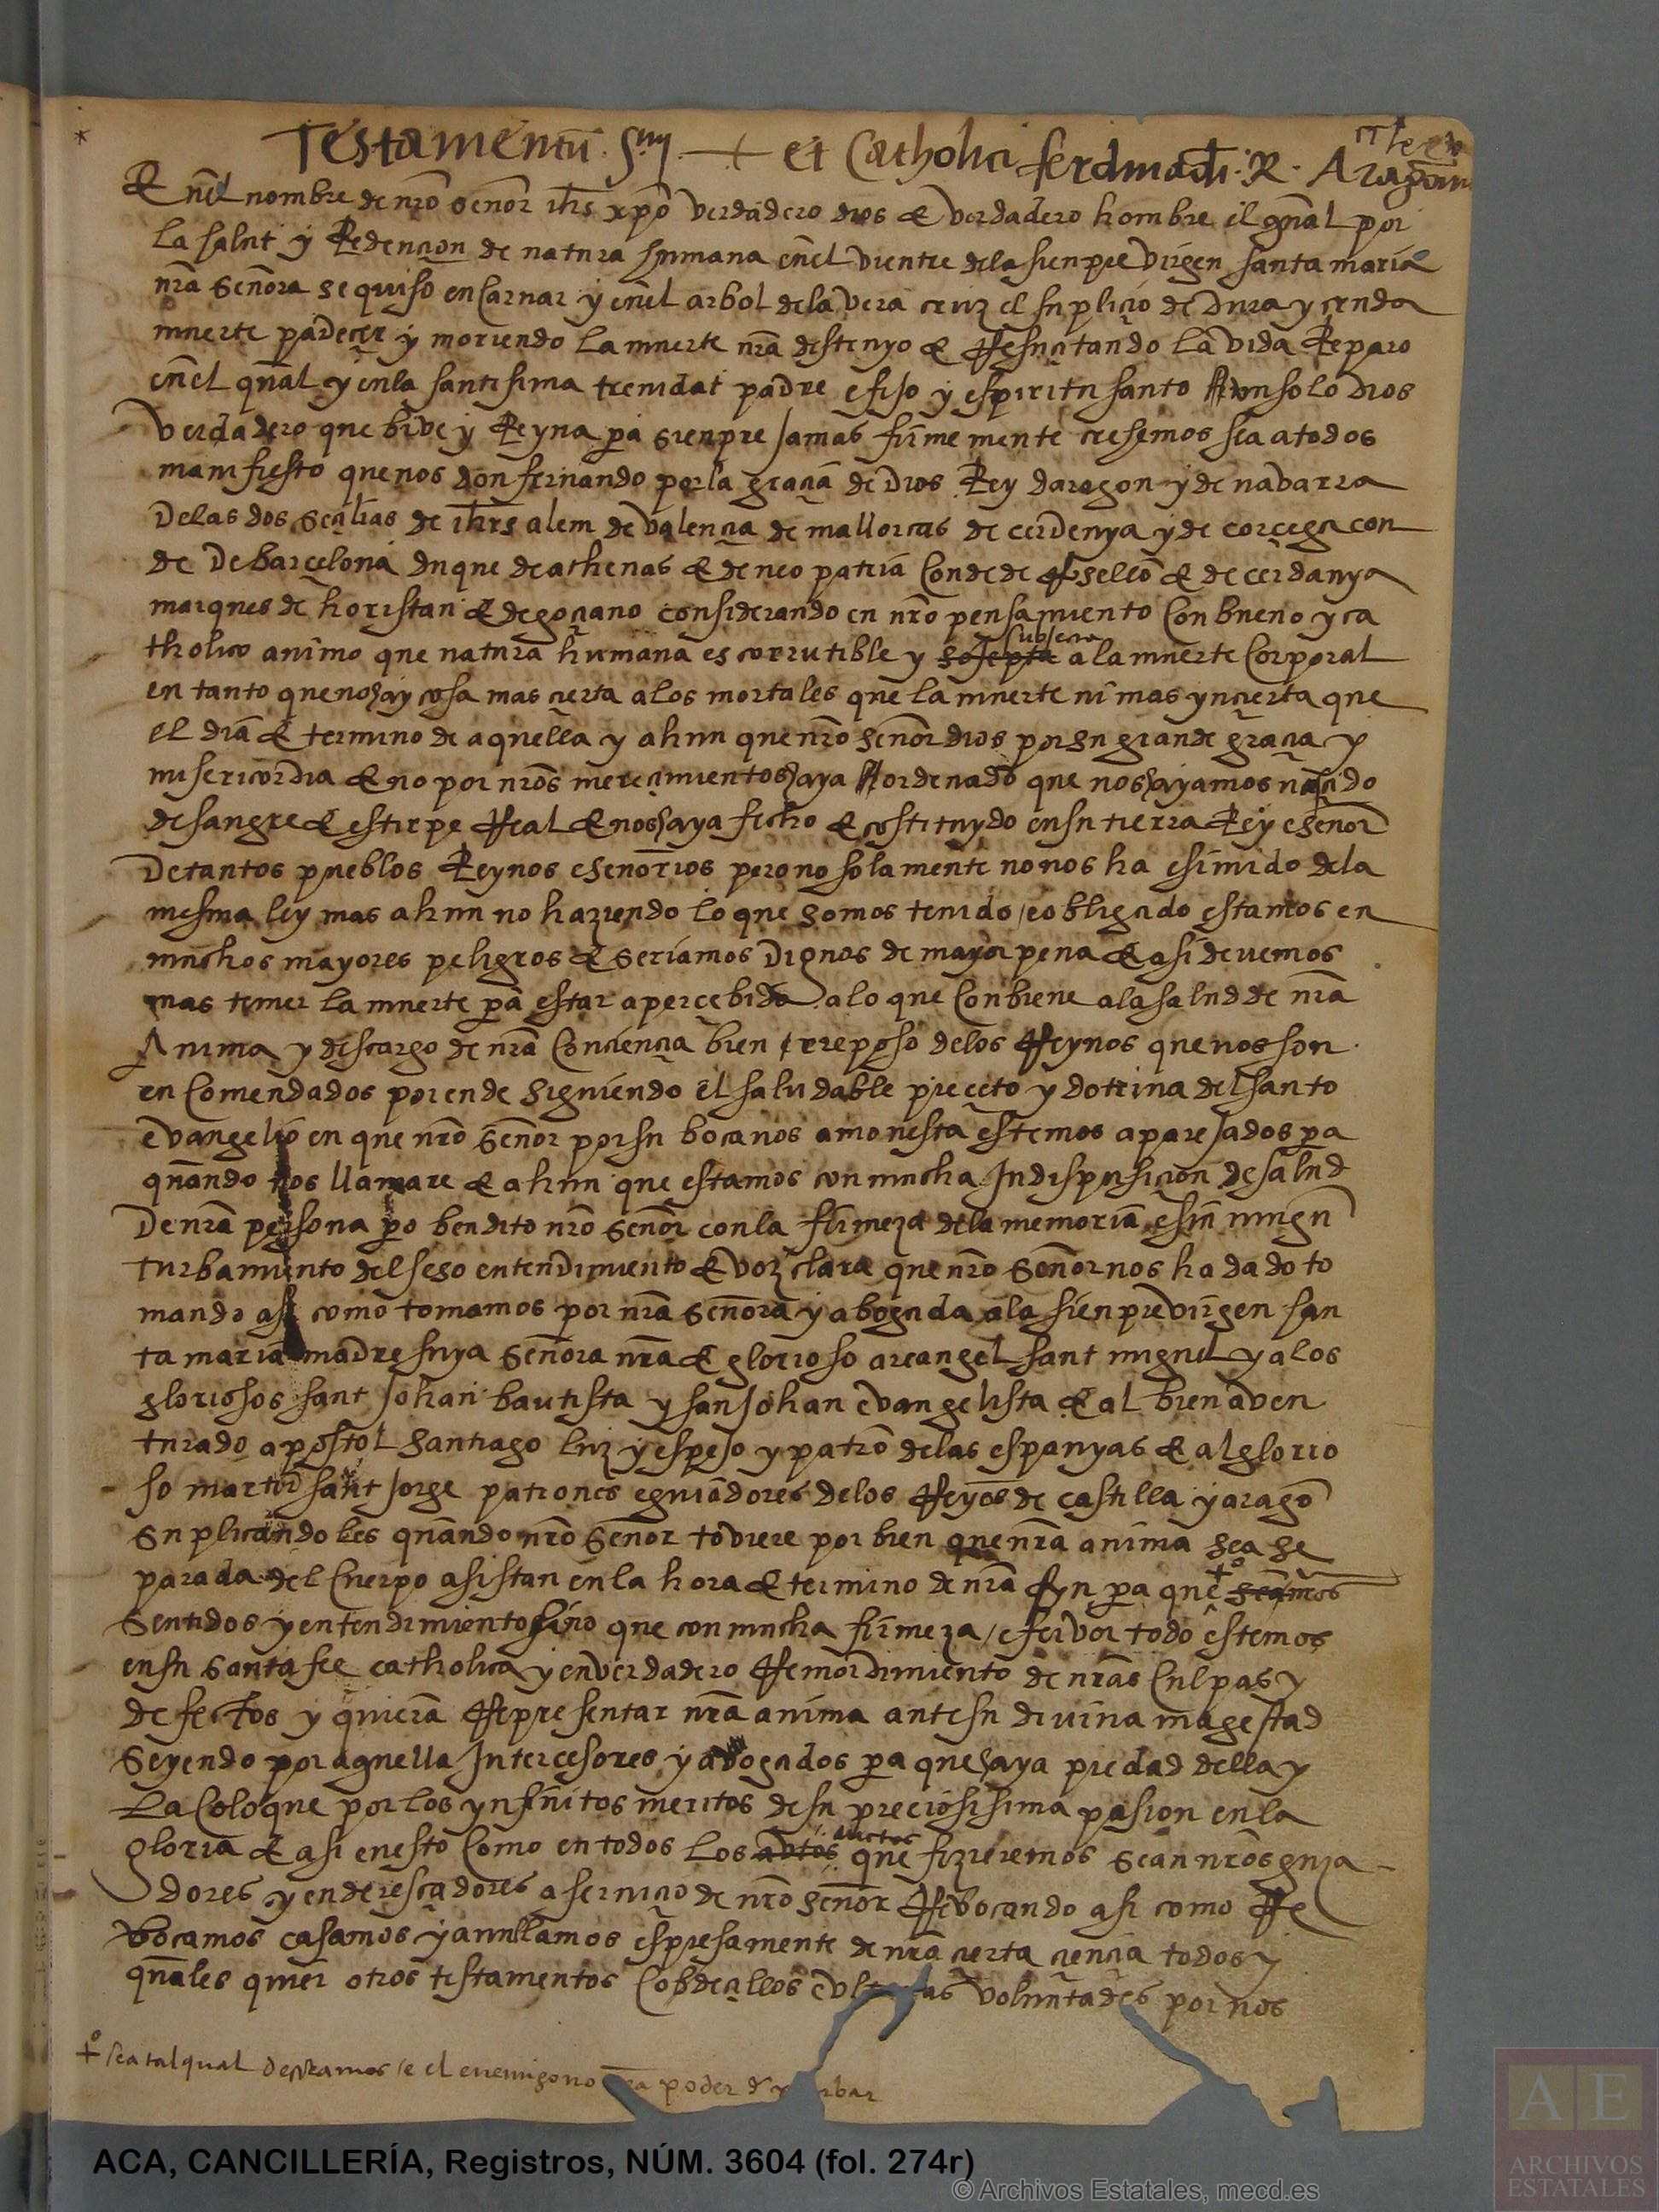 Testamentũ. Smi + et Catholici ferdinãdi. R. Aragonũ
E nel nombre de nrõ señor ihs xpõ verdadero dios & verdadero hombre el qual por
la salut y Redencion de natura humana enel vientre dela sienpre virgen santa maria
nrã Señora se quiso encarnar y enel arbol dela vera cruz el suplicio de dura y cruda
muerte padecer y moriendo la muerte nrã destruyo & Resucitando la vida Reparo
enel qual y enla santisima trenidat padre e fijo y espiritu santo un solo dios
verdadero que bive y Reyna pa sienpre jamas firmemente crehemos sea a todos
manifiesto que nos don fernando porla gracia de dios Rey daragon y de nabarra
Delas dos Secilias de ihrsalem de valencia de mallorcas de cerdenya y de corcega con
de De barcelona duque de athenas & de neopatria Conde de Rosellõ & de cerdanya
marques de horistan & de gociano considerando en nrõ pensamiento Con bueno y ca
tholico animo que natura humana es corrutible y sojepta subjecta a la muerte Corporal
en tanto que no hay cosa mas cierta a los mortales que la muerte ni mas yncierta que
el dia & termino de aquella y ahun que nrõ señor dios por su grande gracia y
misericordia & no por nrõs merecimientos haya ordenado que nos hayamos nacido
de sangre & estirpe Real & nos haya fecho & costituydo en su tierra Rey e señor
De tantos pueblos Reynos e señorios pero no solamente no nos ha esimido dela
mesma ley mas ahun no haziendo lo que somos tenido / e obligado estamos en
muchos mayores peligros & seriamos dignos de mayor pena & asi devemos
mas temer la muerte pa estar apercebido a lo que Conbiene ala salud de nrã
Anima y descargo de nrã Conciencia bien e reposo delos Reynos que nos son
en Comendados por ende siguiendo el saludable preceto y dotrina del santo
evangelio en que nrõ Señor por su boca nos amonesta estemos aparejados pa
quando nos llamare & ahun que estamos con mucha Indisposicion de salud
De nrã persona pero bendito nrõ señor con la firmeza dela memoria e sin ningũ
turbamiento del seso entendimiento & voz clara que nrõ Señor nos ha dado to
mando asi como tomamos por nrã Señora y abogada ala sienpre virgen san
ta maria madre suya Señora nrã & glorioso arcangel sant miguel y a los
gloriosos sant Johan bautista y san Johan evangelista & al bien aven
turado apostol Santiago luz y espejo y patrõ delas espanyas & al glorio
so martir sant Jorge patrones e guiadores delos Reynos de castilla y aragõ
Suplicandoles quando nrõ Señor toviere por bien que nrã anima sea se
parada del Cuerpo asistan en la hora & termino de nrã fyn pa que +º seamos
Sentidos y entendimiento sino que con mucha firmeza / e fervor todo estemos
en su santa fee catholica y en verdadero Remordimiento de nrãs Culpas y
defectos y quieran Representar nrã anima ante su divina magestad
Seyendo por aquella Intercesores y abogados pa que haya piedad della y
La Coloque por los ynfinitos meritos de su preciosisima pasion en la
gloria & asi en esto Como en todos los abtos auctos que fizieremos sean nrõs guia
dores y enderesçadores a servicio de nrõ señor Revocando asi como Re
vocamos casamos y anullamos espresamente de nrã cierta ciencia todos y
quales quier otros testamentos Cobdecillos e ultimas voluntades por nos
+º sea tal qual desseamos e el enemigo no poder de
ACA, CANCILLERÍA, Registros, NÚM. 3604 (fol. 274r)
© Archivos Estatales, mecd.es
AE
ARCHIVOS
ESTATALES